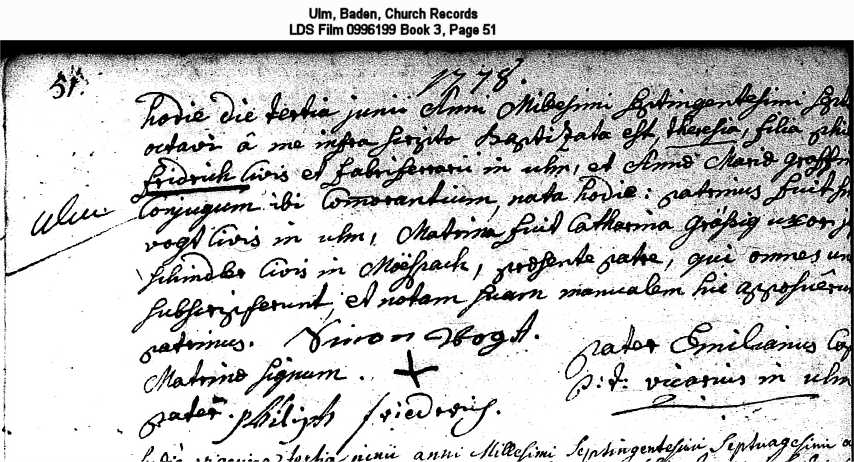 Ulm, Baden, Church Records
LDS Film 0996199 Book 3, Page 51
51.
1778.
hodie die tertia junii Anni Millesimi Septingentesimi
octavi â me infra scripto Baptizata est, theresia, filia
fridrich Civis et fabriferrarii in ulm, et Annæ Mariæ
Conjugum ibi Comorantium, nata hodie: patrinus fuit
ulm
vogt Civis in ulm, Matrina fuit Catharina Größig uxor
schindler Civis in Mößpach, præsente patre, qui omnes
subscripserunt, et notam suam manualem hic apposuêrunt
patrinus. Simon Vogt.
pater Emilianus
Matrinæ signum. +
p: t: vicarius in ulm
pater. philiph friedrich.
tertia junii anni Millesimi Septingentesimi Septuagesimi